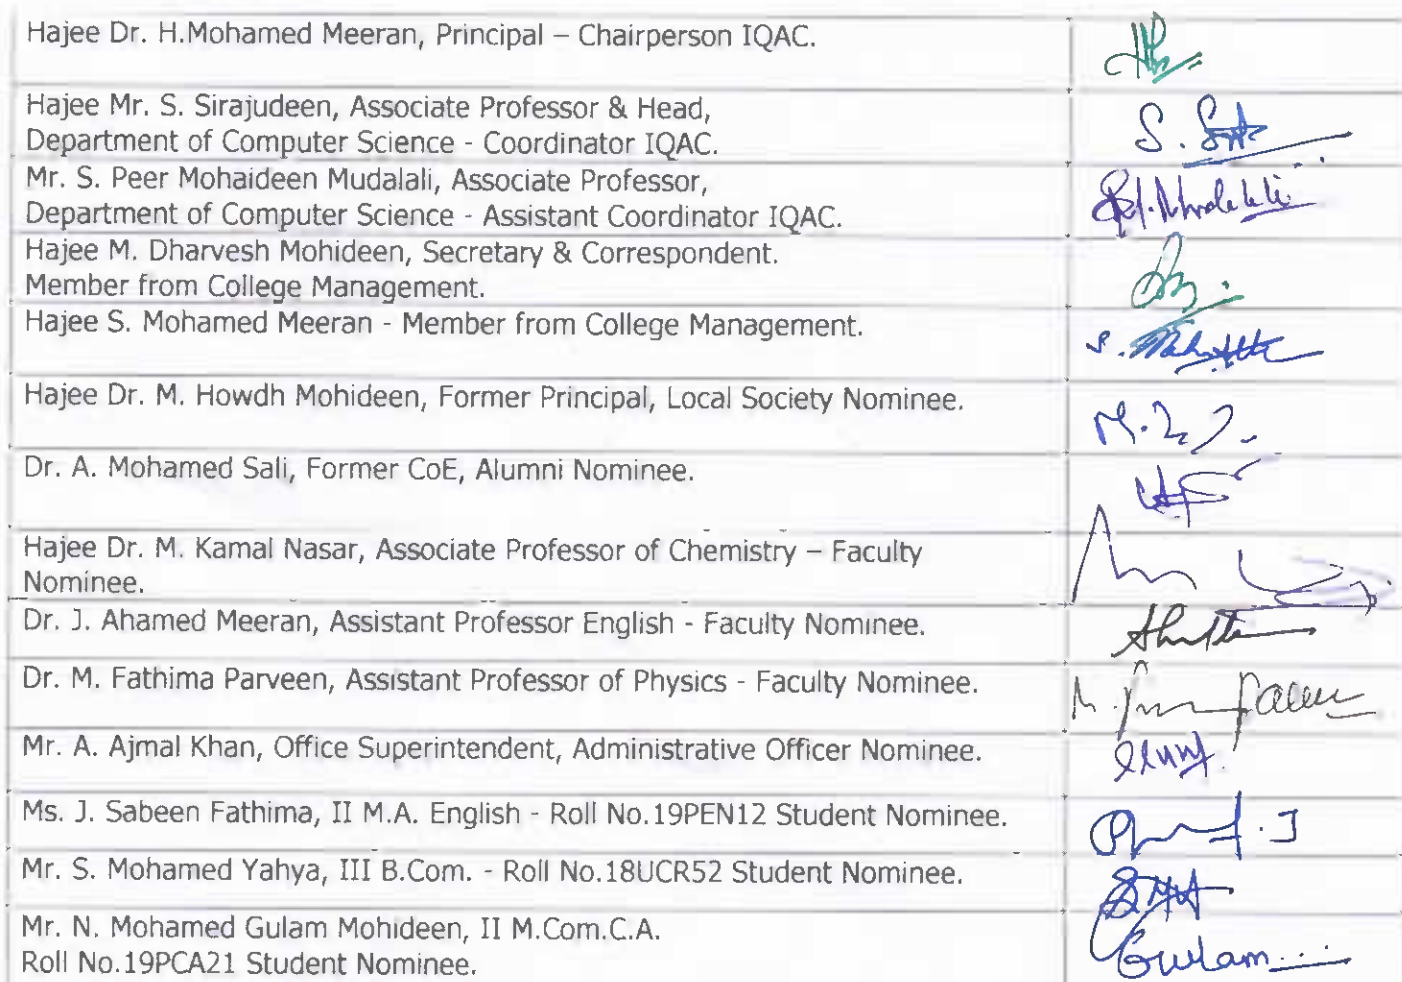 Hajee Dr. H.Mohamed Meeran, Principal – Chairperson IQAC.
Hajee Mr. S. Sirajudeen, Associate Professor & Head,
Department of Computer Science - Coordinator IQAC.
S.
Mr. S. Peer Mohaideen Mudalali, Associate Professor,
Department of Computer Science - Assistant Coordinator IQAC.
Hajee M. Dharvesh Mohideen, Secretary & Correspondent.
Member from College Management.
Hajee S. Mohamed Meeran - Member from College Management.
S.
Hajee Dr. M. Howdh Mohideen, Former Principal, Local Society Nominee.
M.
Dr. A. Mohamed Sali, Former CoE, Alumni Nominee.
Hajee Dr. M. Kamal Nasar, Associate Professor of Chemistry – Faculty
Nominee.
Dr. J. Ahamed Meeran, Assistant Professor English - Faculty Nominee.
Dr. M. Fathima Parveen, Assistant Professor of Physics - Faculty Nominee.
Mr. A. Ajmal Khan, Office Superintendent, Administrative Officer Nominee.
Ms. J. Sabeen Fathima, II M.A. English - Roll No.19PEN12 Student Nominee.
Mr. S. Mohamed Yahya, III B.Com. - Roll No.18UCR52 Student Nominee.
Mr. N. Mohamed Gulam Mohideen, II M.Com.C.A.
Roll No.19PCA21 Student Nominee.
Gulam